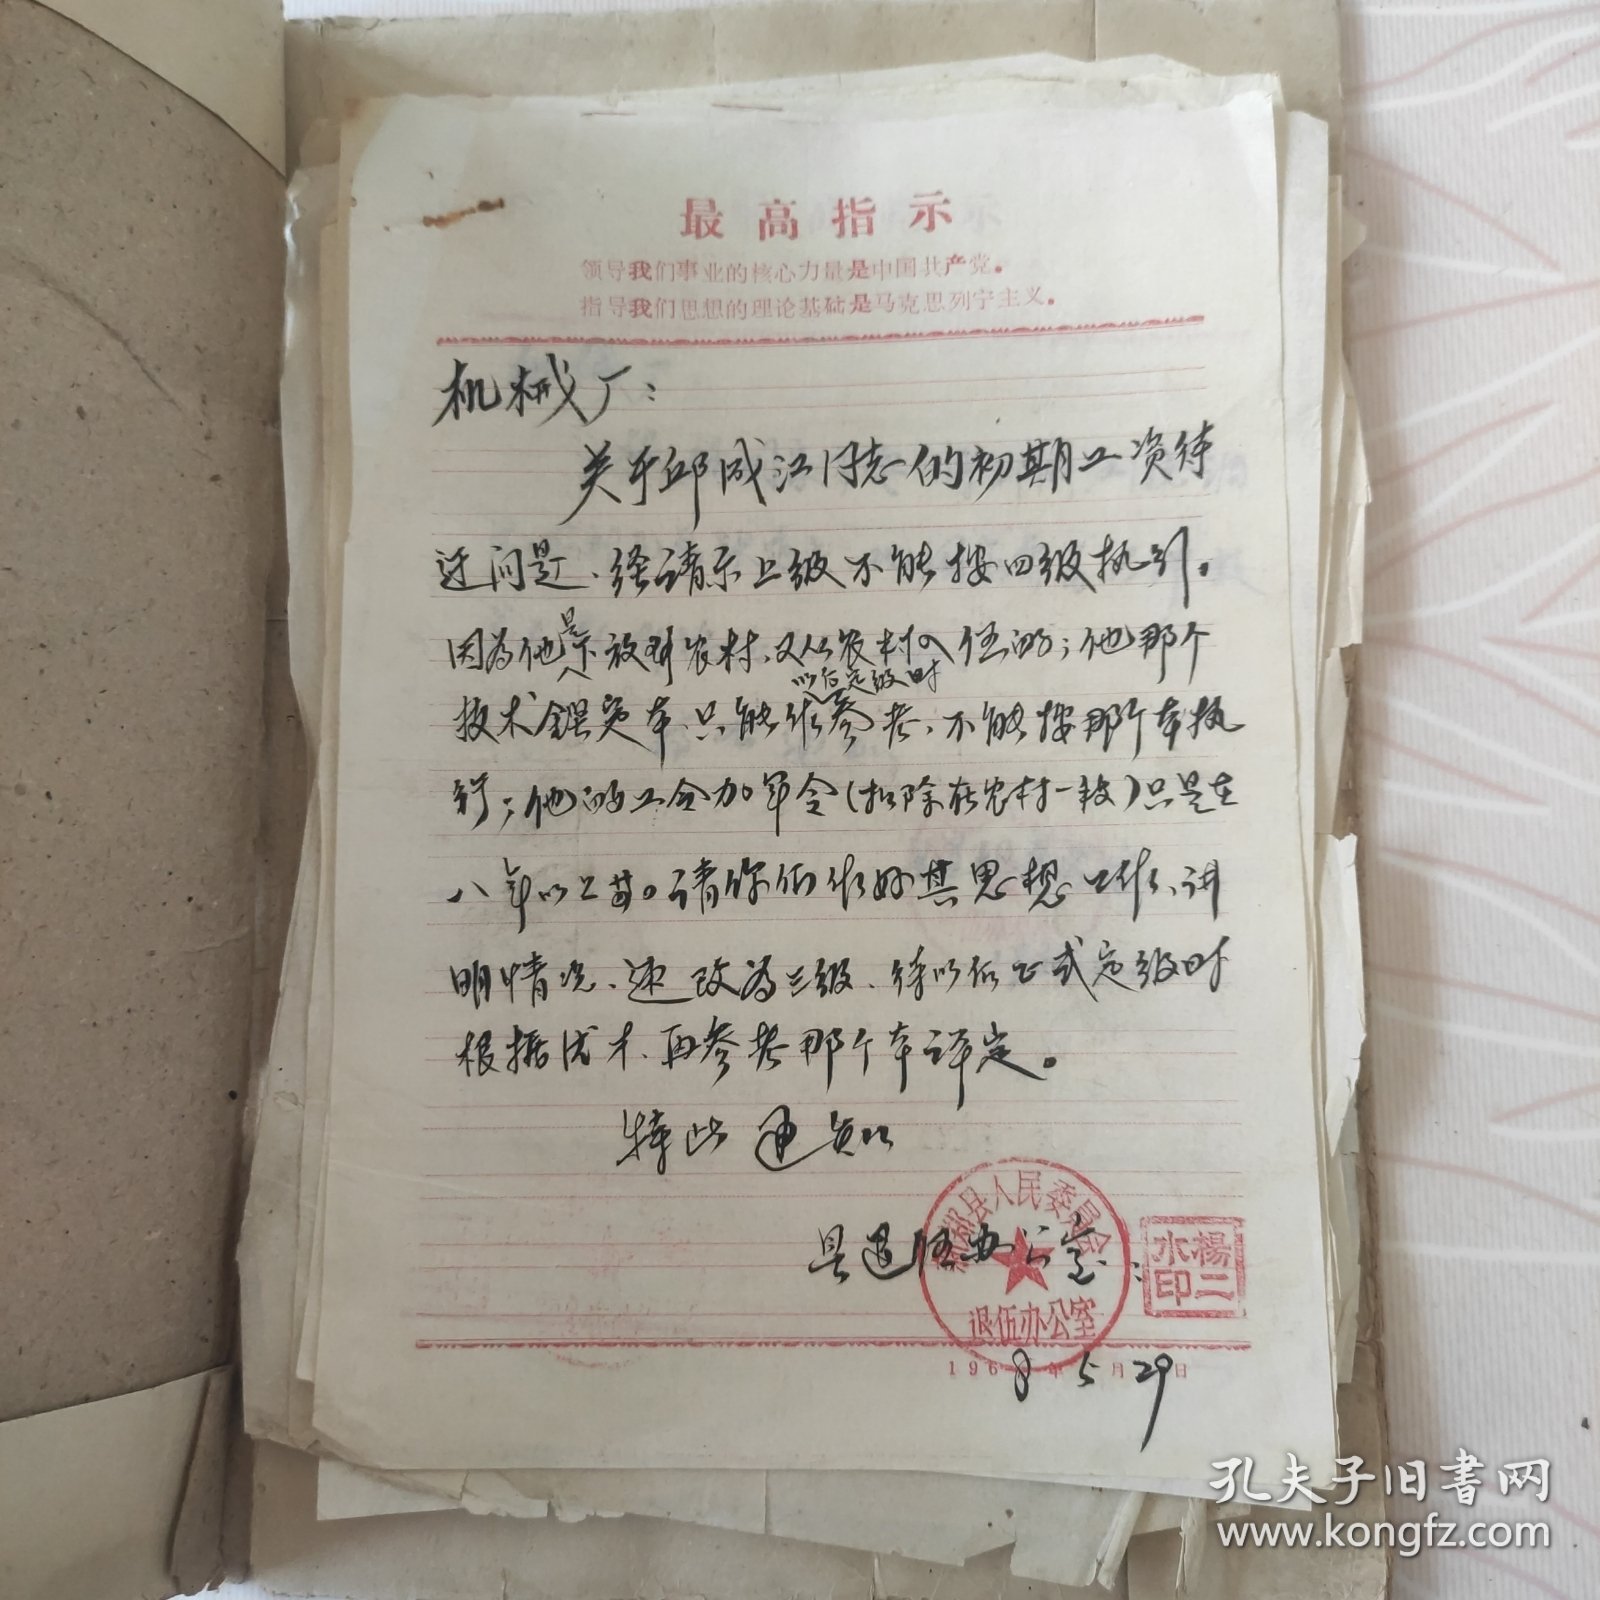 最高指示
领导我们事业的核心力量是中国共产党。
指导我们思想的理论基础是马克思列宁主义。
机械厂：
关于邱成江同志的初期工资待
迂问题、经请示上级不能按四级执行。
因为他是下放到农村、又从农村入伍的；他那个
以后定级时
技术鉴定本、只能作参考、不能按那个本执
行；他的工令加军令（扣除在农村一段）只是在
八年以上苗。请你们作好其思想工作、讲
明情况、速改为三级、待以后正式定级时
根据技术、再参考那个本评定。
特此通知
县退伍办公室：
湖县人民委员会
退伍办公室
楊二水印
1968年5月29日
孔夫子旧書网
www.kongfz.com